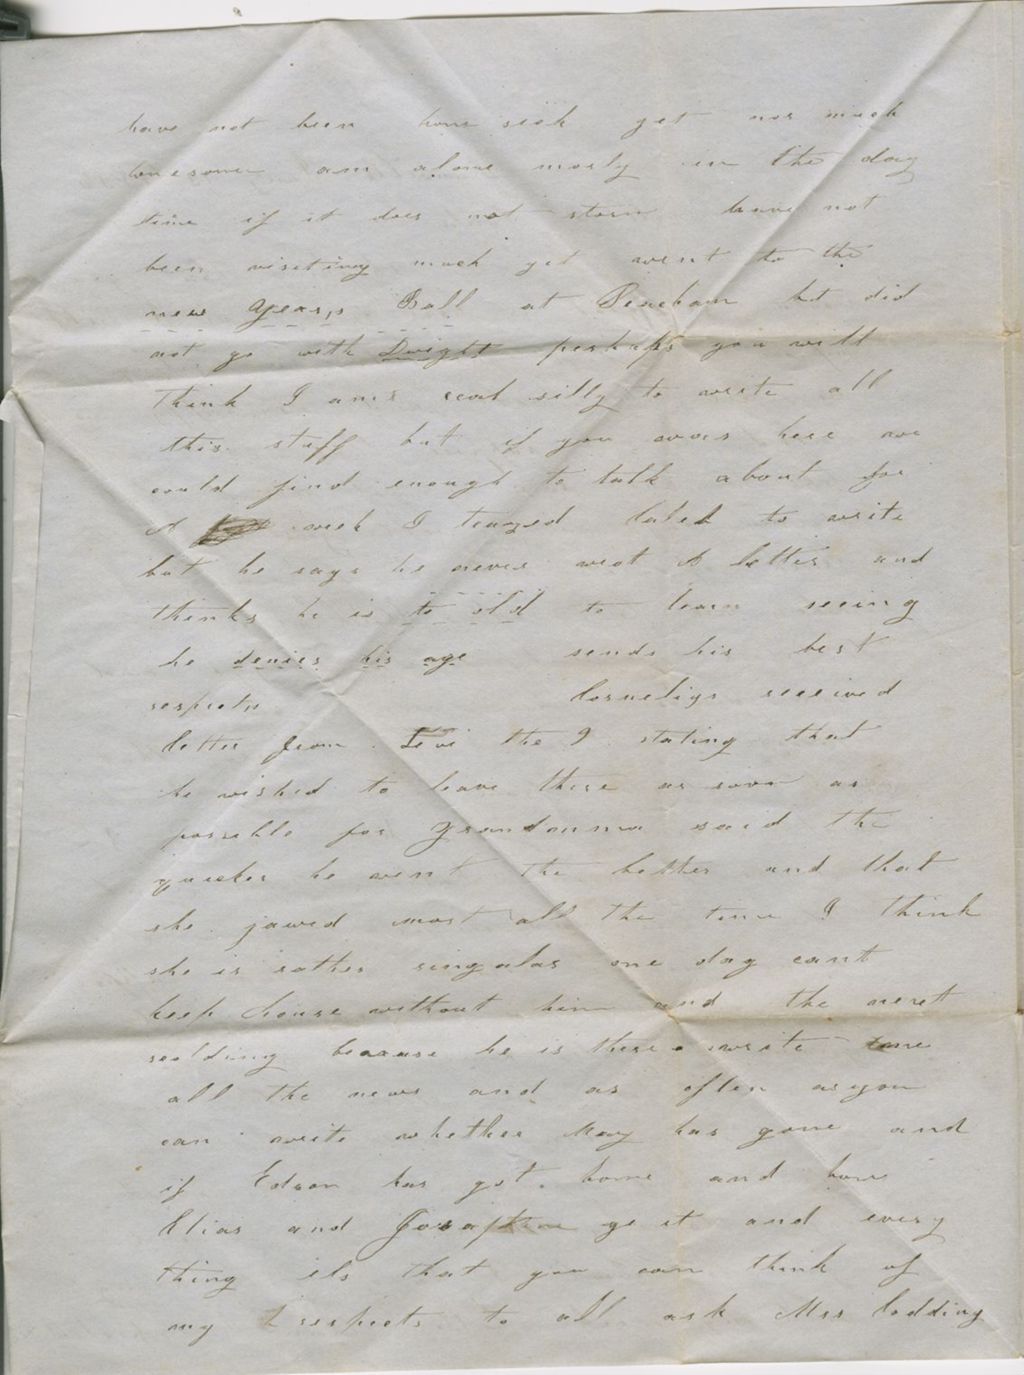 have not been home sick yet nor much
lonesome am alone mosly in the day
time if it does not storm have not
been viseting much yet went to the
new years Ball at Peacham but did
not go with Dwight perhaps you will
think I am real silly to write all
this stuff but if you were here we
could find enough to talk about for
A week I teazed Caleb to write
but he says he never wrot A letter and
thinks he is to old to learn seeing
he denies his age sends his best
respects Cornelius received
letter from Levi the 9 stating that
he wished to leave there as soon as
possible for Grandmma said the
quicker he went the better and that
she jawed most all the time I think
she is rather singular one day cant
keep house without him and the next
scolding because he is there write me
all the news and as often as you
can write whether May has gone and
if Edson has got home and how
Elias and Josaphine go it and every
thing els that you can think of
my respects to all ask Mrs Codding